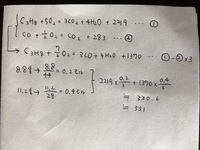 C3H8 + 5O2 = 3CO2 + 4H2O + 2219 … ①
CO + 1/2 O2 = CO2 + 283 … ②
C3H8 + 7/2 O2 = 3CO + 4H2O + 1370 … ①-②×3
8.8g → 8.8/44 = 0.2
11.2g → 11.2/28 = 0.4
2219 × 0.2/3 + 1370 × 0.4/3
≒ 330.6
≒ 331